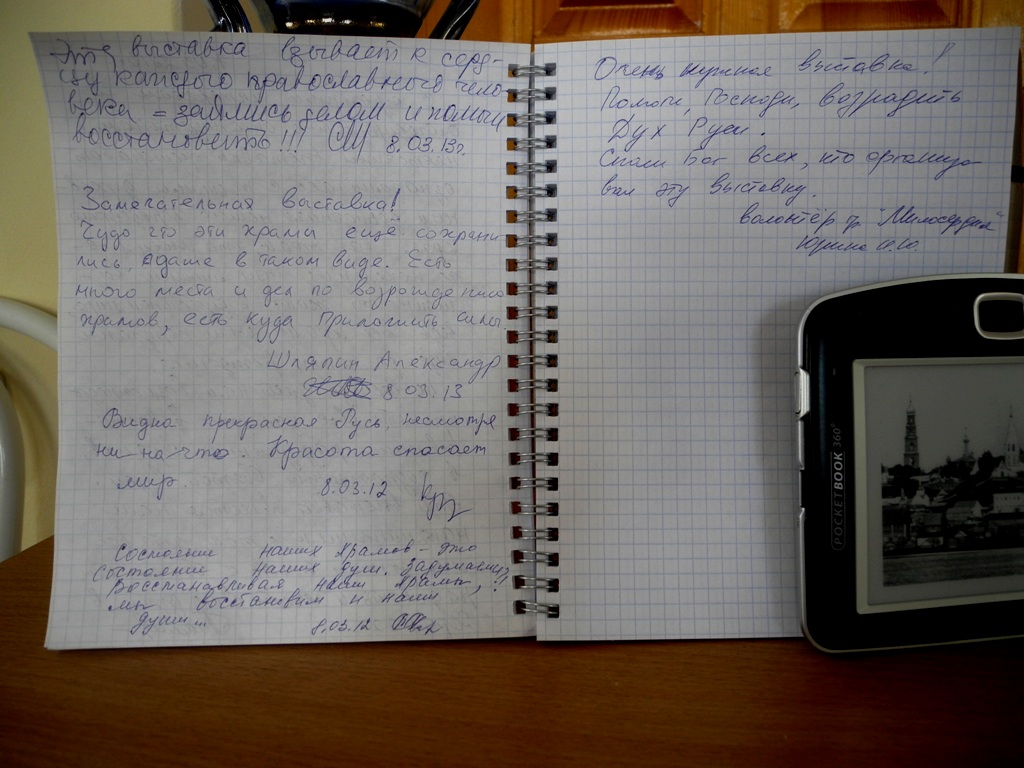 Эта выставка взывает к серд-
цу каждого православного чело-
века - займись делом и помоги
восстановить!!! 8.03.13г.
Замечательная выставка!
Чудо что эти храмы ещё сохрани
лись, даже в таком виде. Есть
много места и дел по возрождению
храмов, есть куда приложить силы.
Шляпин Александр
8.03.13
Видна прекрасная Русь, несмотря
ни на что. Красота спасает
мир. 8.03.12
Состояние наших храмов - это
состояние наших душ. Задумаемся?!
Восстанавливая наши храмы,
мы восстановим и наши
души... 8.03.12
Очень нужная выставка!
Помоги, Господи, возродить
Дух Руси.
Спаси Бог всех, кто организо-
вал эту выставку.
волонтёр гр. "Милосердия"
Юрина
POCKETBOOK 360°